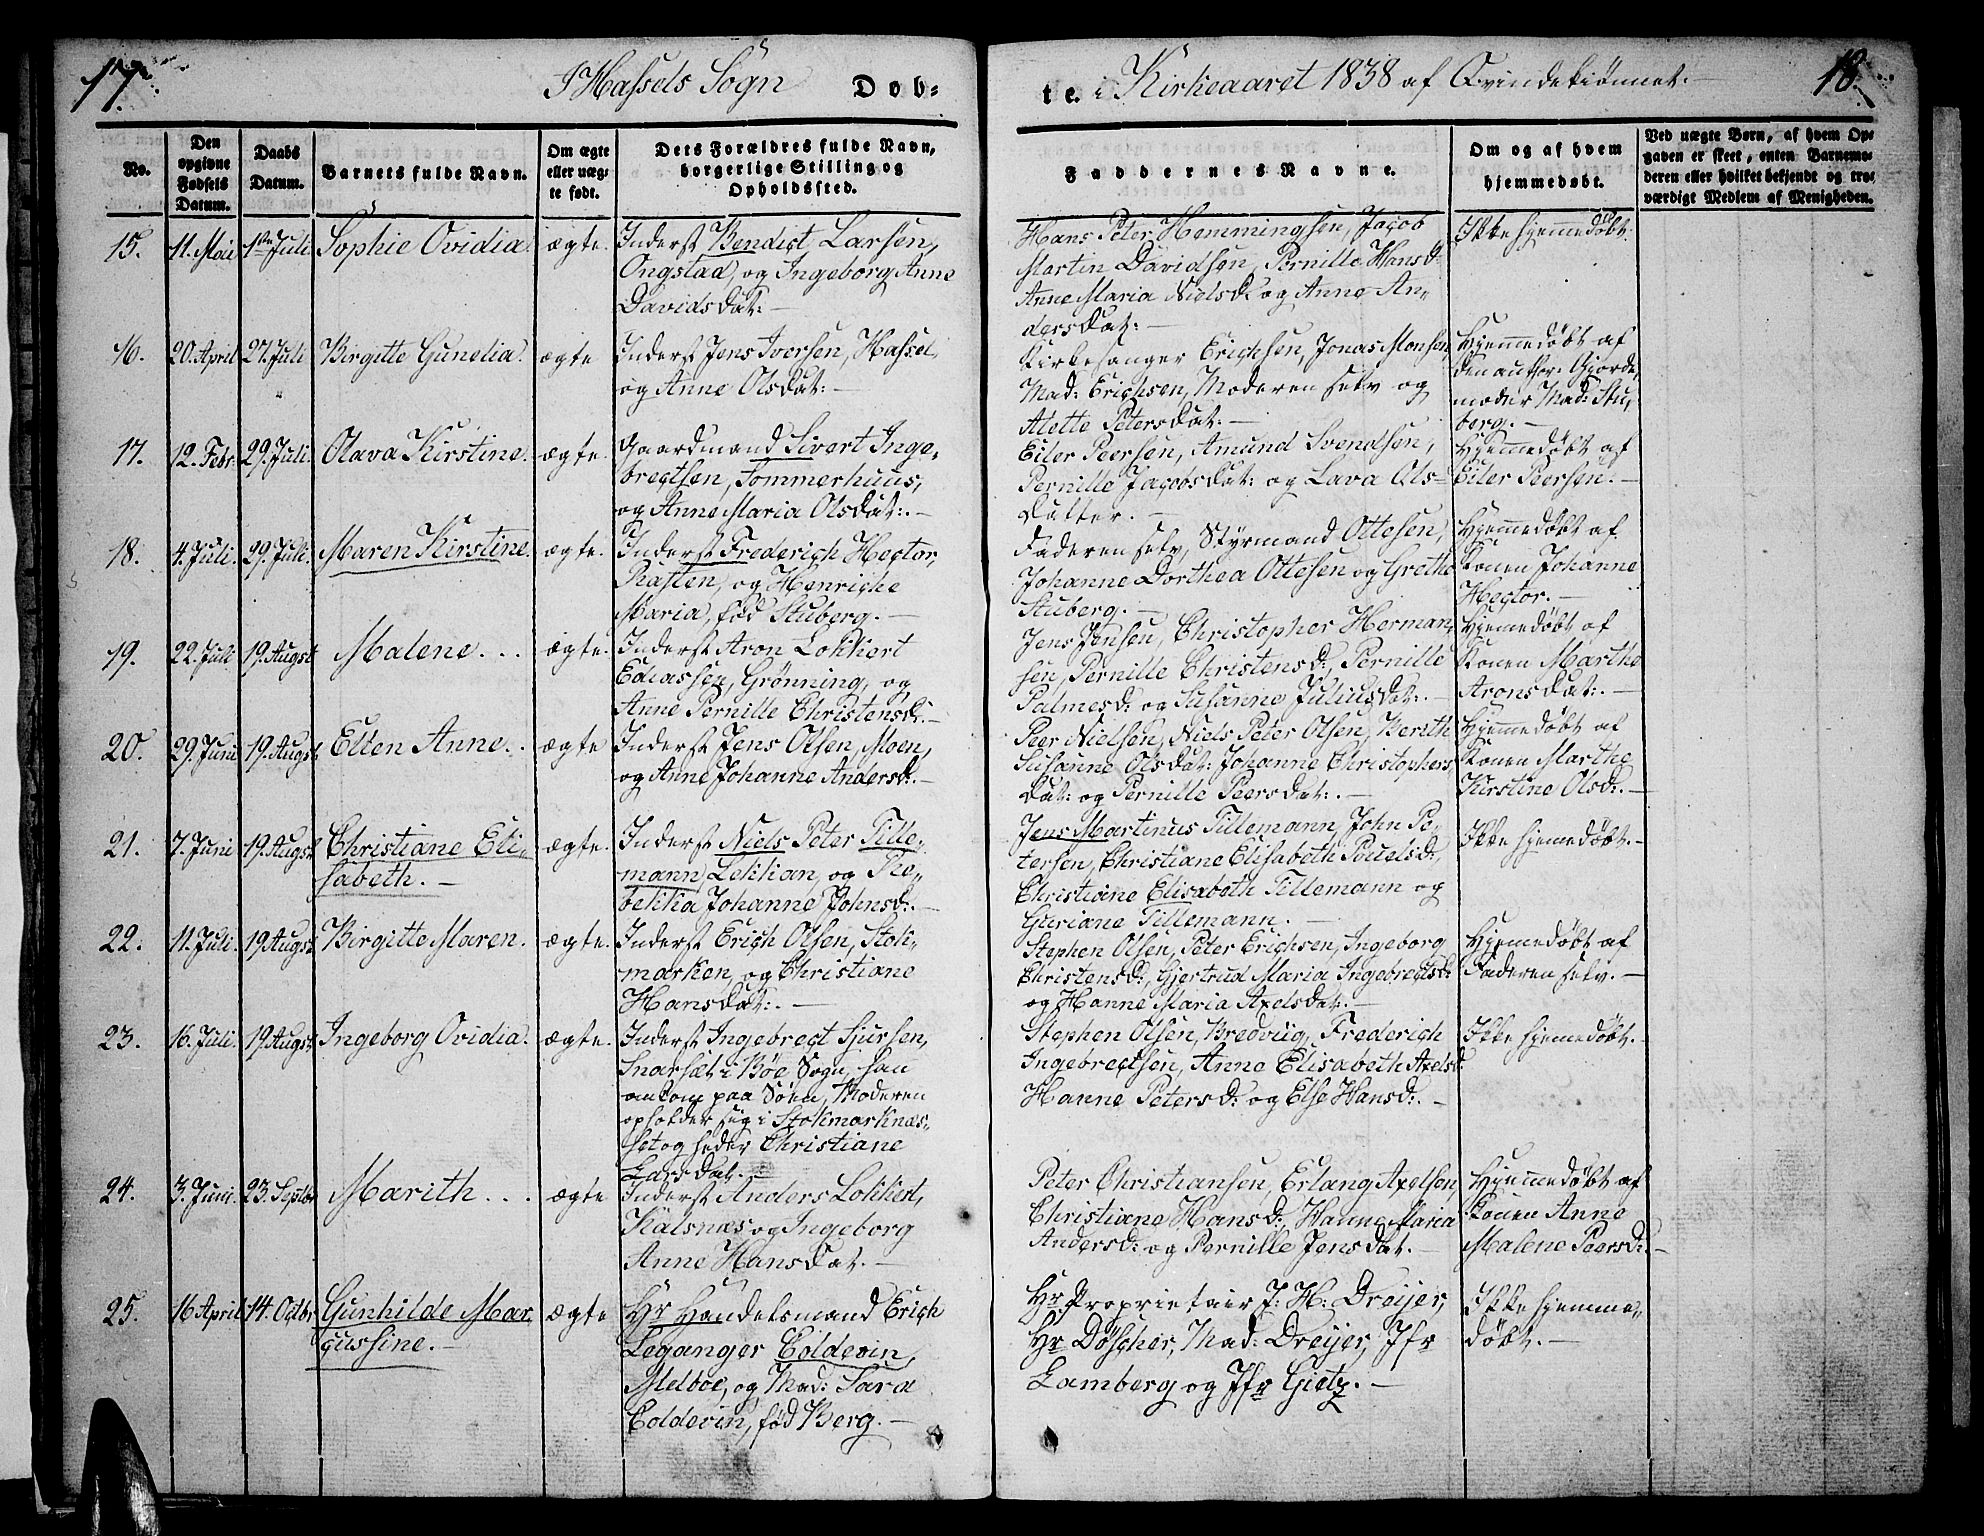 17.
I Hassels Sogn Dob-
te. i Kirkeaaret 1838 af Qvindekiønnet. —
18.
No.
Den opgivne Fødsels Datum.
Daabs Datum.
Barnets fulde Navn.
Om ægte eller uægte født.
Dets Forældres fulde Navn, borgerlige Stilling og Opholdssted.
Faddernes Navne.
Om og af hvem hjemmedøbt.
Ved uægte Børn, af hvem Opgaven er skeet, enten Barnemoderen eller hvilket bekjendt og troværdigt Medlem af Menigheden.
15. 11. Mai 1ste Juli Sophie Ovidia. ægte.
Inderst Bendict Larsen,
Ongstad, og Ingeborg Anne
Davidsdat: —
Hans Peter Hemmingsen, Jacob
Martin Davidsen, Pernille Hansd:
Anne Maria Nielsd: og Anne An-
dersdat: —
Ikke hjemmedøbt.
16. 20. April 27. Juli Birgitte Gunelia. ægte
Inderst Jens Iversen, Hassel,
og Anne Olsdat: —
Kirkesanger Erichsen, Jonas Monsen,
Mad: Erichsen, Moderen selv og
Alette Petersdat: —
Hjemmedøbt af
den author: Gjorde-
moder Mad: Stu-
berg. —
17. 12. Febr. 29. Juli. Olava Kirstine. ægte.
Gaardmand Sivert Inge-
bregtsen, Sommerhuus,
og Anne Maria Olsdat: —
Eiler Peersen, Amund Svendsen,
Pernille Jacobsdat: og Lava Ols-
datter. —
Hjemmedøbt af
Eiler Peersen. —
18. 4. Juli. 29. Juli. Maren Kirstine. ægte.
Inderst Frederich Hector,
Rasten, og Henriche
Maria, fød Stuberg. —
Faderen selv, Styrmand Ottesen,
Johanne Dorthea Ottesen og Grethe
Stuberg. —
Hjemmedøbt af
Konen Johanne
Hector. —
19. 22. Juli 19. Augst Malene... ægte.
Inderst Aron Lokkert
Ediassen, Grønning, og
Anne Pernille Christensd: —
Jens Jensen, Christopher Herman-
sen, Pernille Christensd:, Pernille
Palmesd: og Susanne Juliusdat: —
Hjemmedøbt af
Konen Marthe
Aronsdat: —
20. 29. Juni 19. Augst Ellen Anne.. ægte
Inderst Jens Olsen, Moen,
og Anne Johanne Andersd: —
Peer Nielsen, Niels Peter Olsen, Berith
Susanne Olsdat: Johanne Christophers-
dat: og Pernille Peersdat: —
Hjemmedøbt af
Konen Marthe
Kirstine Olsd: —
21. 7. Juni 19. Augst Christiane Eli-
sabeth. — ægte.
Inderst Niels Peter Tille-
mann, Lekkian, og Re-
bekkia Johanne Johnsd: —
Jens Martinus Tillemann, John Pe-
tersen, Christiane Elisabeth Pouelsd:,
Christiane Elisabeth Tillemann og
Guriane Tillemann. —
Ikke hjemmedøbt. —
22. 11. Juli. 19. Augst Birgitte Maren. ægte.
Inderst Erich Olsen, Stok-
marken, og Christiane
Hansdat: —
Stephen Olsen, Peter Erichsen, Ingeborg
Christensd:, Gjertrud Maria Ingebregtsd:
og Hanne Maria Axelsdat. —
Hjemmedøbt af
Faderen selv. —
23. 16. Juli. 19. Augst Ingeborg Ovidia. ægte.
Inderst Ingebregt Sjursen,
Snarset i Bøe Sogn, han
omkom paa Søen, Moderen
opholder sig i Stokmarknæs-
set og heder Christiane
Larsdat. —
Stephen Olsen, Bredviig, Frederich
Ingebregtsen, Anne Elisabeth Axelsd:
Hanne Petersd: og Else Hansd: —
Ikke hjemmedøbt. —
24. 3. Juni. 23. Septbr Marith... ægte
Inderst Anders Lokkert,
Kalsnæs og Ingeborg
Anne Hansdat. —
Peter Christiansen, Erlang Axelsen,
Christiane Hansd:, Hanne Maria
Andersd: og Pernille Jensdat. —
Hjemmedøbt af
Konen Anne
Malene Peersd: —
25. 16 April 14. Octbr Gunhilde Mar-
gussine. — ægte
Hr Handelsmand Erich
Leganger Coldevin,
Melboe, og Mad: Sara
Coldevin, fød Berg. —
Hr Proprietair J. H: Dreijer,
Hr Døscher, Mad: Dreijer, Jfr
Lamberg og Jfr Gietz. —
Ikke hjemme-
døbt. —